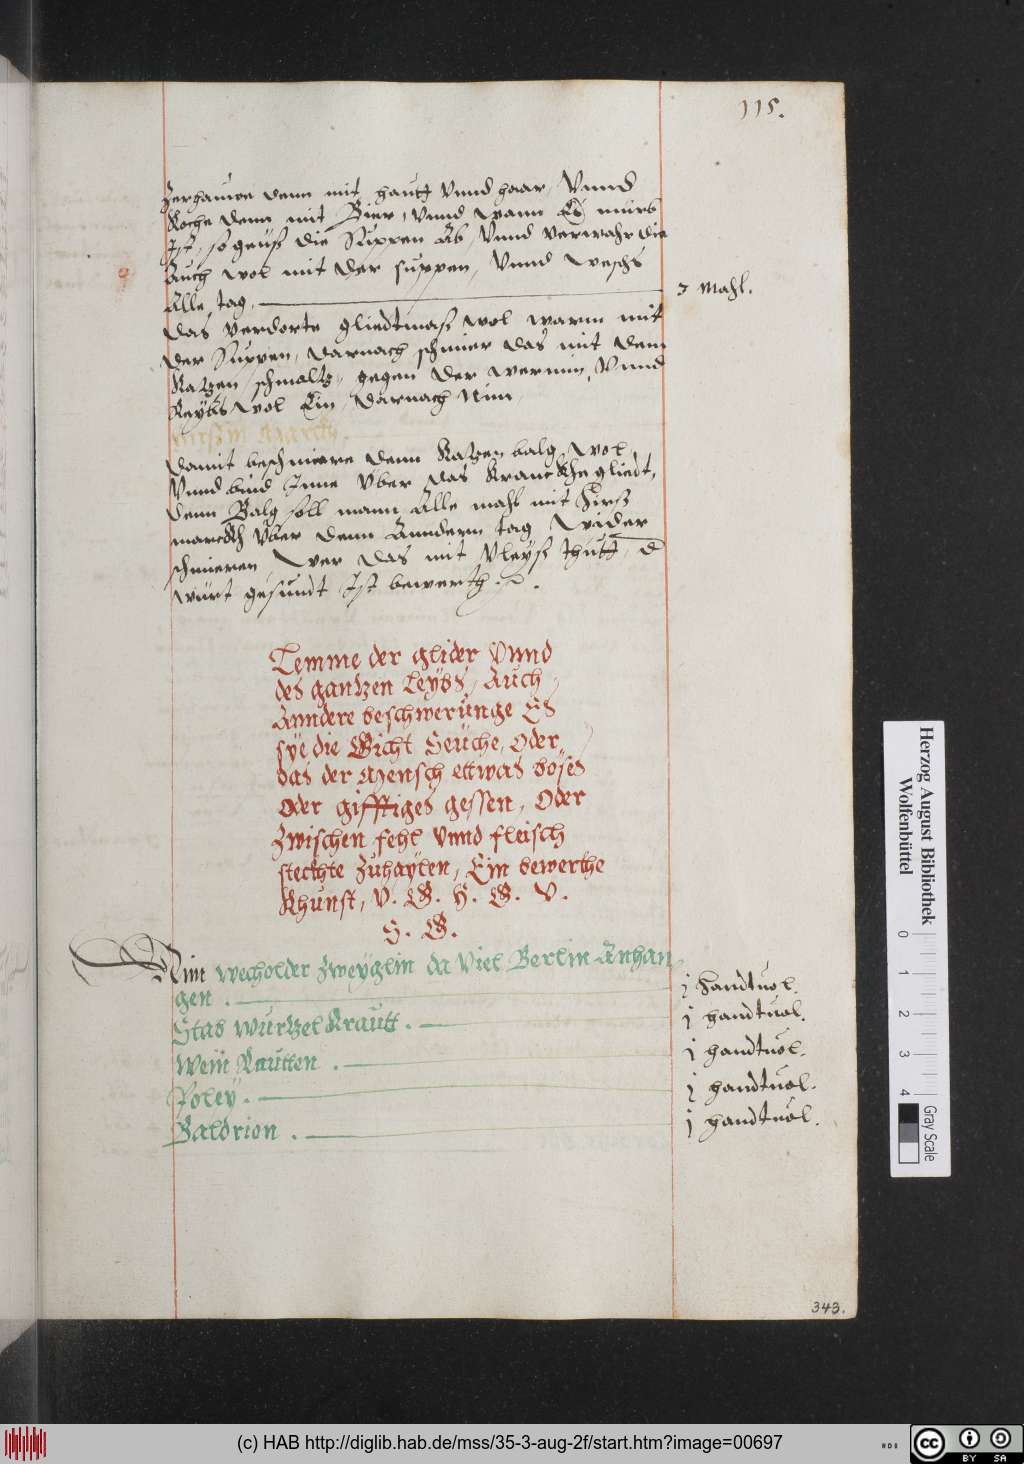 115.
Zerhauwe denn mit hautt Vnnd haar, Vnnd
Koche denn mit Bier, Vnnd wann Es mürb
Ist, so geuß die Suppen Ab, Vnnd verwahr die
Auch wol mit der suppen, Vnnd weschs
Alle tag. 3 Mahl.
das verdorte gliedtmaß wol warm mit
der Suppen, darnach schmier das mit dem
Katzen schmaltz, gegen der wermin, Vnnd
Reybs wol Ein, darnach Nim,
Hirßin Marckh.
damit beschmiere denn Katzen balg, wol
Vnnd bind Inne Vber das Kranckhe gliedt,
denn Balg soll mann Alle mahl mit Hirß
marckh Vber denn Anndern tag Wider
schmieren Wer das mit Vleyß thutt, d
würt gesundt Ist bewerth.
Lemme der glider Vnnd
des gantzen Leybs, Auch
Anndere beschwerunge Es
sye die Gicht Seuche, Oder
das der Mensch ettwas böses
Oder gifftiges gessen, Oder
Zwischen fehl Vnnd fleisch
steckhte Zuhaylen, Ein bewerthe
Khunst, V. G. H. G. V.
H. G.
Nim wecholder Zweyglin da Viel Berlin Anhan
gen. j Handtuol.
Stab wurtzel Krautt. j handtuol.
Wein Rautten. j handtuol.
Poley. j handtuol.
Baldrion. j handtuol.
343.
Herzog August Bibliothek
Wolfenbüttel
0 1 2 3 4
Gray Scale
(c) HAB http://diglib.hab.de/mss/35-3-aug-2f/start.htm?image=00697
cc BY SA